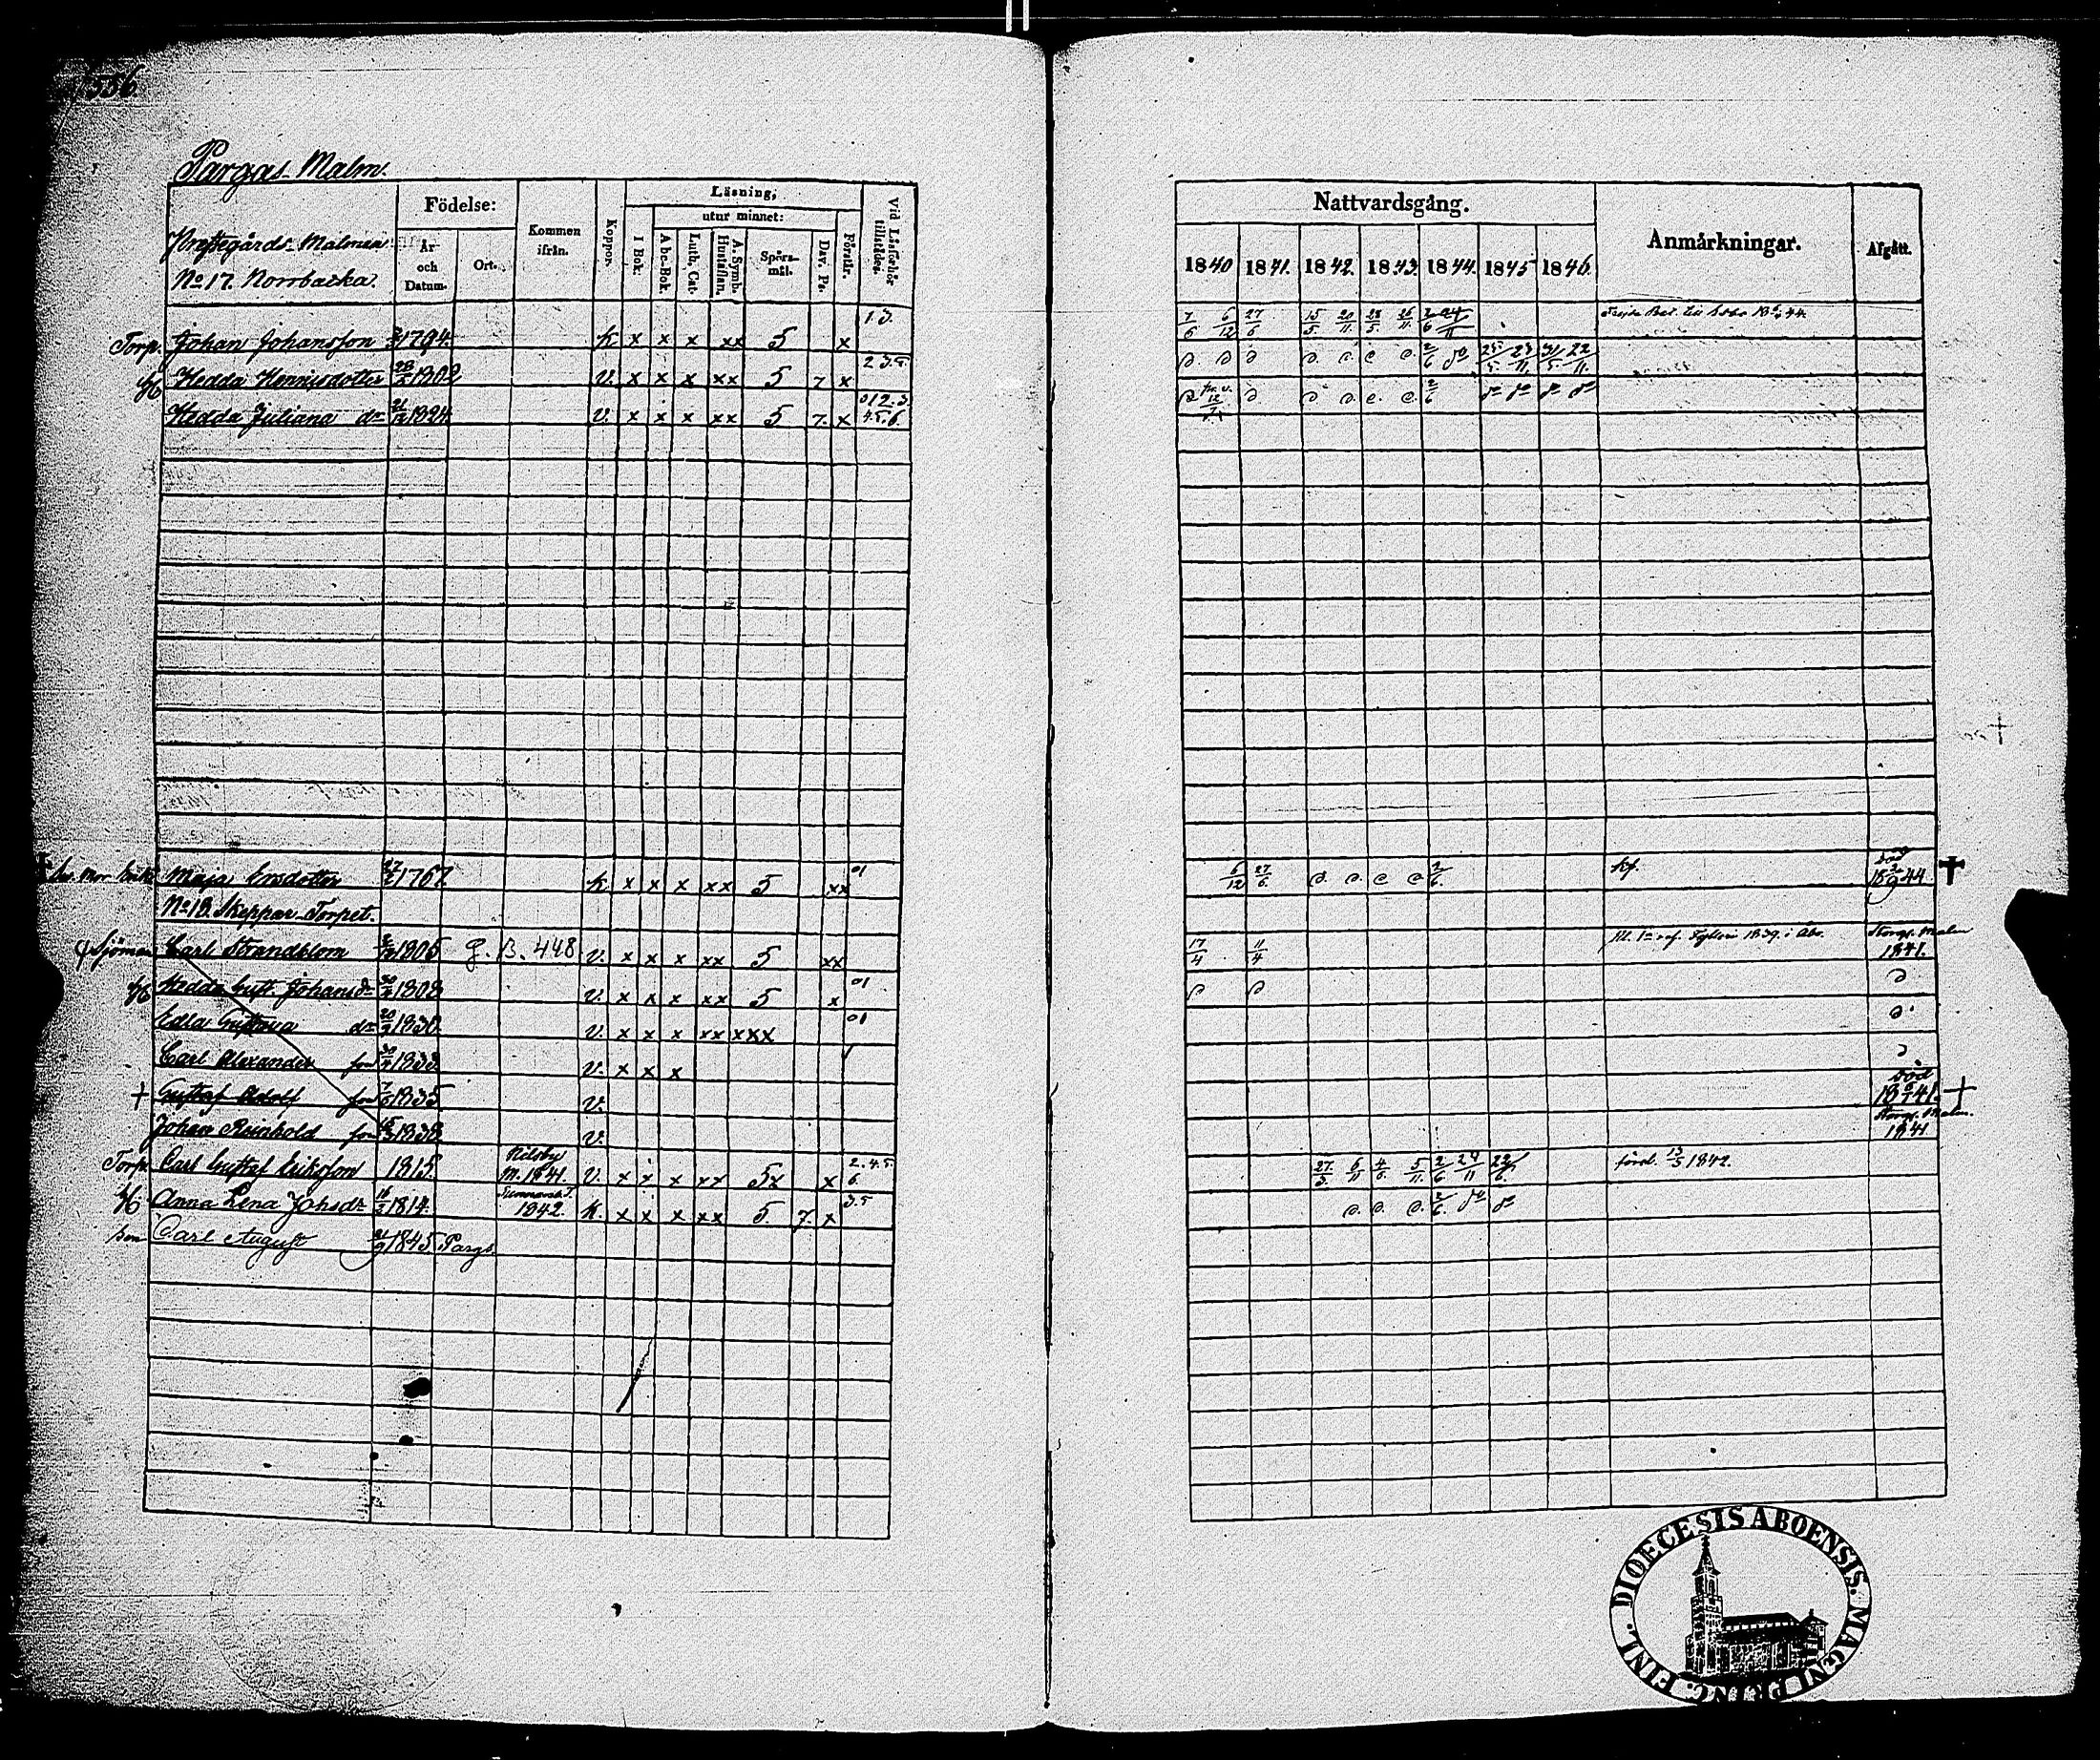 556.
Pargas Malm.
Prestegårds-Malmen
No 17. Norrbacka.
Födelse:
År och Datum.
Ort.
Kommen ifrån.
Koppor.
Läsning,
I Bok.
utur minnet:
A b c-Bok.
Luth. Cat.
A. Symb. Hustaflan.
Spörsmål.
Dav. Ps.
Förstår.
Vid Läsförhör tillstädes.
Nattvardsgång.
1840 1841. 1842. 1843. 1844. 1845 1846.
Anmärkningar.
Afgått.
Torp. Johan Johansson 1794. k x x x xx 5 x 1 3. 7/6 6/12 27/6 15/5 20/11 28/5 26/11
H Hedda Henricsdotter 1802 v. x x x xx 5 7 x 2 3. 5. 2/6 25/5 23/11 31/5 22/11
Hedda Juliana dr 21/12 1824. v. x x x xx 5 7. x 0 1 2. 3 4. 5. 6. 2/6
Maja Ersdotter 27/2 1767. k x x x xx 5 xx 01 6/12 27/6. 2/6. kf. död 18 2/9 44
No 18. Skeppar-Torpet.
Sjöman Carl Strandblom 1806 g. B. 448 v. x x x xx 5 xx 17/4 11/4 1839. i Åbo. Storg. Malm 1841.
H Hedda Gust. Johansdr 1808 v. x x x xx 5 x 01
Edla Gustava dr 1830. v. x x x xx xxx 01
Carl Alexander son 1833 v. x x x
+ Gustaf Adolf son 1835 v. död 1841 +
Johan Reinhold son 1838 v. Storg. Malm. 1841
Torp. Carl Gustaf Eriksson 1815. M. 1841. v. x x x xx 5x x 2. 4. 5. 6. 27/3. 6/11 4/6. 5/11. 2/6 24/11 22/6. 13/3 1842.
H Anna Lena Johsdr 16/3 1814. 1842. k. x x x xx 5 7. x 3. 5 2/6.
son Carl August 21/9 1845 Pargs.
DIOECESIS ABOENSIS. MAGNI PRINC. FINL.